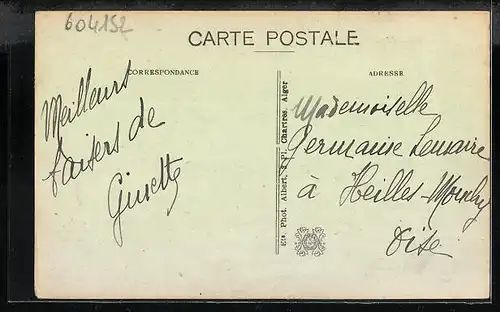 604152
CARTE POSTALE
CORRESPONDANCE
ADRESSE
Meilleurs
baisers de
Ginette
Ets. Phot. Albert, 3 Pl. Chartres, Alger
Mademoiselle
Germaine Lemaire
à Heilles-Mouchy
Oise